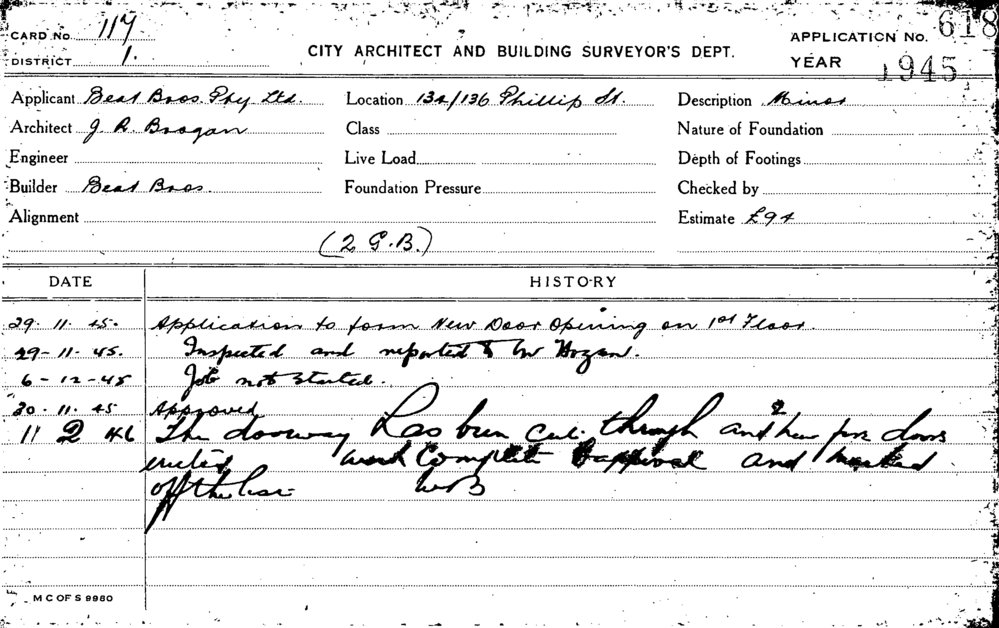 CARD No. 117
APPLICATION No. 618
DISTRICT 1.
CITY ARCHITECT AND BUILDING SURVEYOR'S DEPT.
YEAR 1945
Applicant Beat Bros. Pty Ltd. Location 134/136 Phillip St. Description Minor
Architect J. R. Brogan Class Nature of Foundation
Engineer Live Load Depth of Footings
Builder Beat Bros. Foundation Pressure Checked by
Alignment Estimate £94
(2 G.B.)
DATE HISTORY
29. 11. 45. Application to form New Door Opening on 1st Floor.
29-11-45. Inspected and reported to Mr Hogan.
6-12-45 Job not started.
30.11.45 Approved
11 2 46 The doorway has been cut through and 2 new fire doors
erected work Complete approval and marked
off the list WB
M C OF S 9980